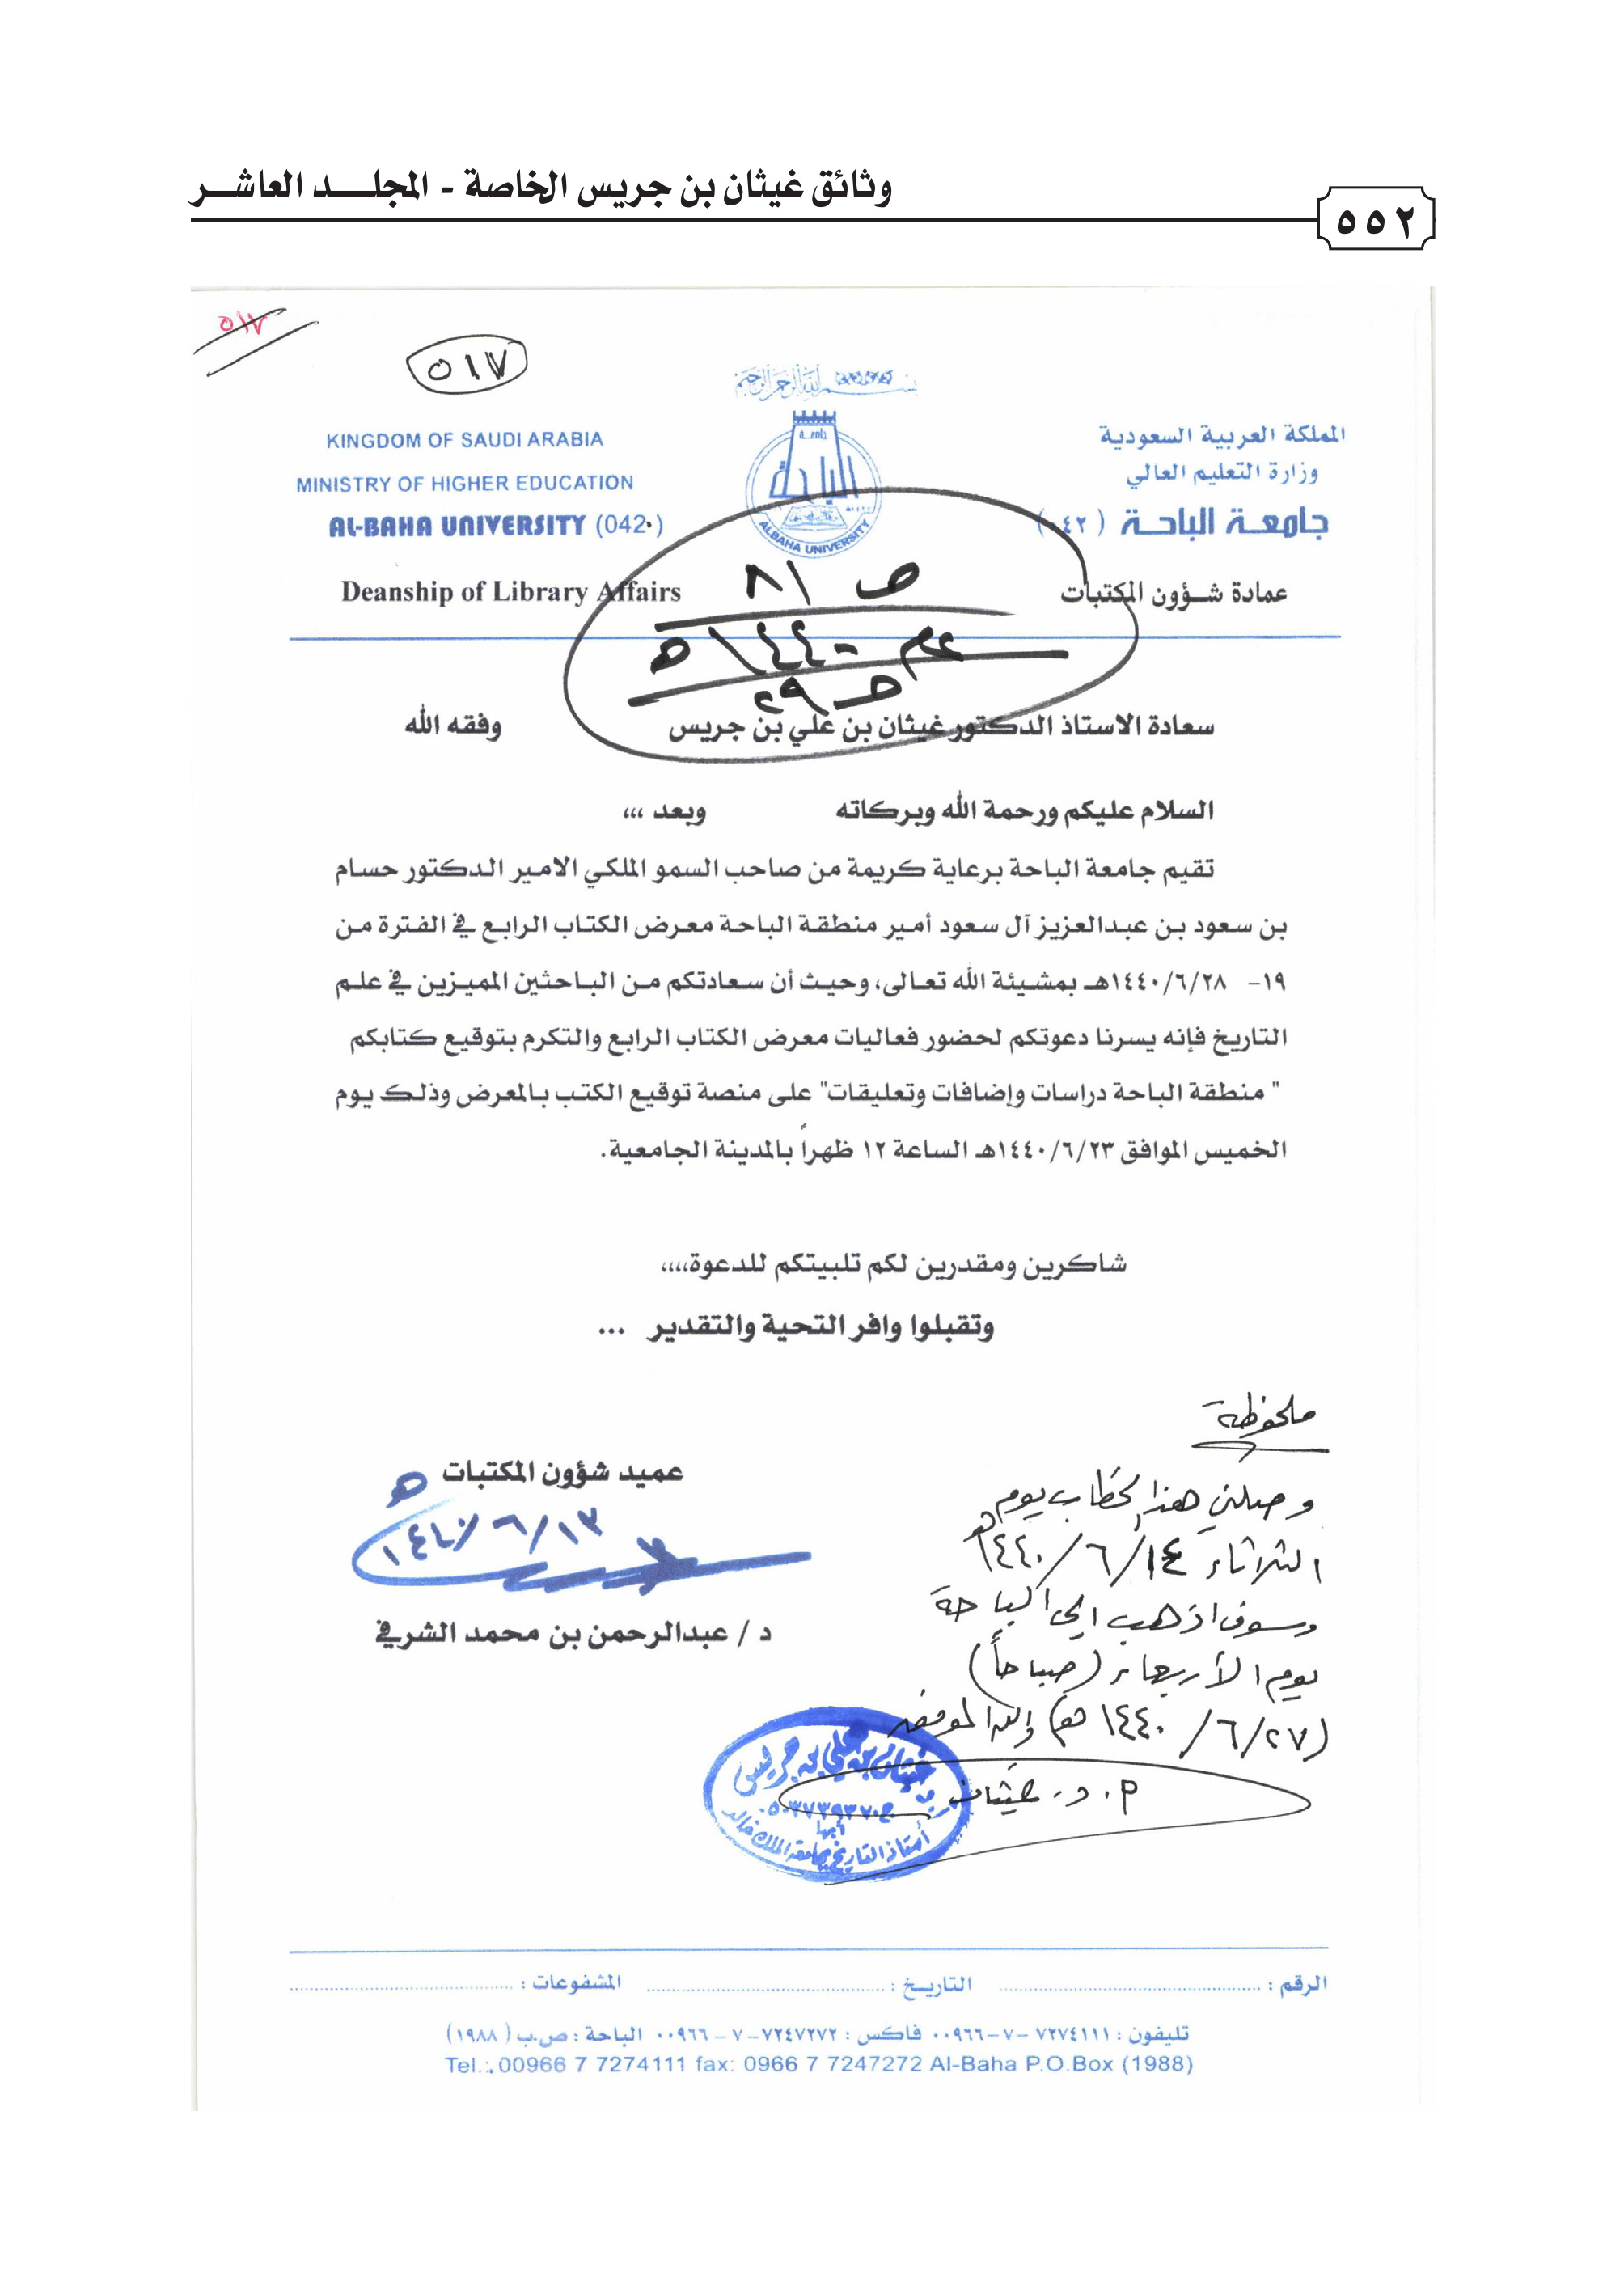 وثائق غيثان بن جريس الخاصة - المجلـــد العاشـــر
٥٥٢
٥١٧
٥١٧
بسم الله الرحمن الرحيم
KINGDOM OF SAUDI ARABIA
المملكة العربية السعودية
MINISTRY OF HIGHER EDUCATION
وزارة التعليم العالي
AL-BAHA UNIVERSITY (042٠)
جامعـة الباحـة (٠٤٢)
جامعة
الباحة
ALBAHA UNIVERSITY
Deanship of Library Affairs
عمادة شـؤون المكتبات
ص ٨١
عام ١٤٤٠هـ
حـ ٢٩
سعادة الاستاذ الدكتور غيثان بن علي بن جريس وفقه الله
السلام عليكم ورحمة الله وبركاته وبعد ،،،
تقيم جامعة الباحة برعاية كريمة من صاحب السمو الملكي الامير الدكتور حسام
بن سعود بن عبدالعزيز آل سعود أمير منطقة الباحة معرض الكتاب الرابع في الفترة من
١٩- ١٤٤٠/٦/٢٨هـ بمشيئة الله تعالى، وحيث أن سعادتكم من الباحثين المميزين في علم
التاريخ فإنه يسرنا دعوتكم لحضور فعاليات معرض الكتاب الرابع والتكرم بتوقيع كتابكم
" منطقة الباحة دراسات وإضافات وتعليقات" على منصة توقيع الكتب بالمعرض وذلك يوم
الخميس الموافق ١٤٤٠/٦/٢٣هـ الساعة ١٢ ظهراً بالمدينة الجامعية.
شاكرين ومقدرين لكم تلبيتكم للدعوة،،،،
وتقبلوا وافر التحية والتقدير ...
ملحوظة
عميد شؤون المكتبات
١٤٤٠/٦/١٣هـ
د / عبدالرحمن بن محمد الشرفي
وصلني هذا الخطاب يوم
الثلاثاء ١٤٤٠/٦/١٤هـ
وسوف اذهب الى الباحة
يوم الأربعاء (صباحاً)
(١٤٤٠/٦/٢٧هـ) والله الموفق
أ. د. غيثان
غيثان بن علي بن جريس
أبها
أستاذ التاريخ بجامعة الملك خالد
الرقم : التاريـخ : المشفوعات :
تليفون : ٧٢٧٤١١١ -٧-٠٠٩٦٦ فاكس : ٧٢٤٧٢٧٢-٧-٠٠٩٦٦ الباحة : ص.ب (١٩٨٨)
Tel.: 00966 7 7274111 fax: 0966 7 7247272 Al-Baha P.O.Box (1988)